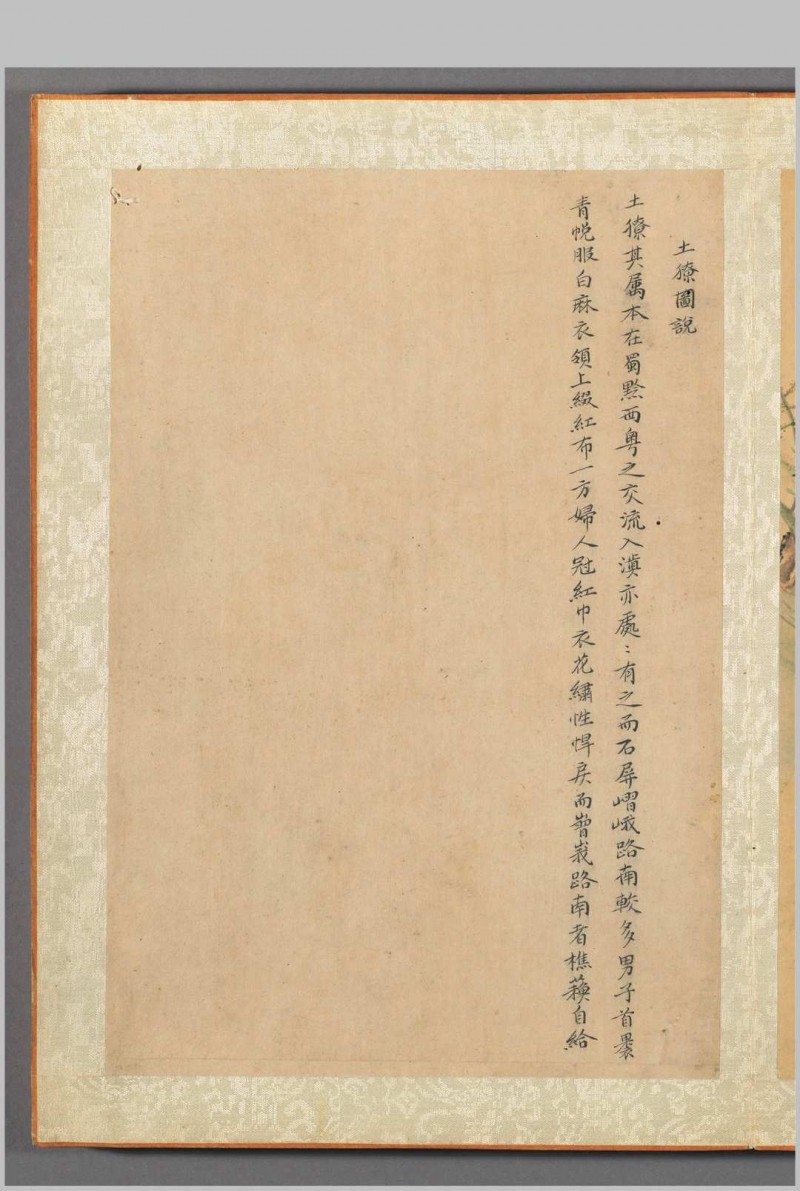 土獠圖說
土獠其属本在蜀黔西粤之交流入滇亦處〻有之而石屏嶍峨路南較多男子首裹
青帨服白麻衣領上綴紅布一方婦人冠紅巾衣花繡性悍戾而嶍峩路南者樵蘓自給